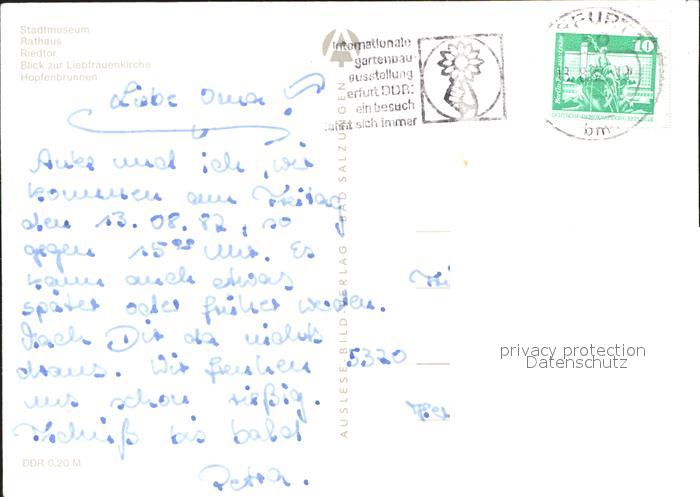 Stadtmuseum
Rathaus
Riedtor
Blick zur Liebfrauenkirche
Hopfenbrunnen
Liebe Oma!
Anke und ich, wir
kommen am Freitag
den 13.08.82, so
gegen 15 Uhr. Es
kann auch etwas
später oder früher werden.
Mach Dir da nichts
draus. Wir freuen
uns schon riesig.
Tschüß bis bald
Petra.
DDR 0,20 M
AUSLESE-BILD-VERLAG BAD SALZUNGEN
internationale
gartenbau-
ausstellung
erfurt DDR:
ein besuch
lohnt sich immer
ERFURT
bm
10
DEUTSCHE DEMOKRATISCHE REPUBLIK
5320
privacy protection
Datenschutz